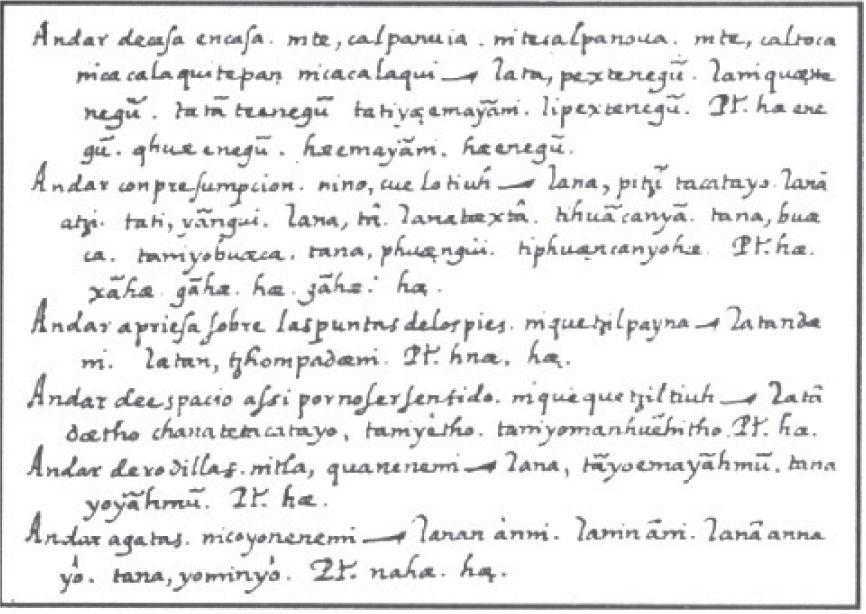 Andar decasa encasa. nite, calpanuia. nitecalpanoua. nite, caltoca
nicacalaquitepan nicacalaqui — lata, pextenegũ. lamiquæxte
negũ. tatãteenegũ tatiyęemayãmi. lipextenegũ. Pt. hæene
gũ. qhuæenegũ. hæemayãmi. hæenegũ.
Andar conpresumpcion. nino, cuelotiuh — lana, pitzi tacatayo. lanã
atzi. tati, yãngui. lana, tâ. lanatæxtâ. tihuãcanyã. tana, buæ
ca. tamiyobuæca. tana, phuęngüi. tiphuęncanyohæ. Pt. hæ.
xãhæ. gãhæ. hæ. zãhæ. hę.
Andar apriesa sobre laspuntas delospies. niquetzilpayna — latandæ
mi. latan, tzhompadæmi. Pt. hnæ. hę.
Andar deespacio assi pornosersentido. niquequetziltiuh — latâ
dætho chanatetacatayo, tamiyètho. tamiyomanhuẽhitho. Pt. hæ.
Andar derodillas. nitla, quanenemi — lana, tãyoemayãhmũ. tana
yoyãhmũ. Pt. hæ.
Andar agatas. nicoyonenemi — lanan ànni. laminãmi. lanãanna
yò. tana, yominyò. Pt. nahæ. hę.